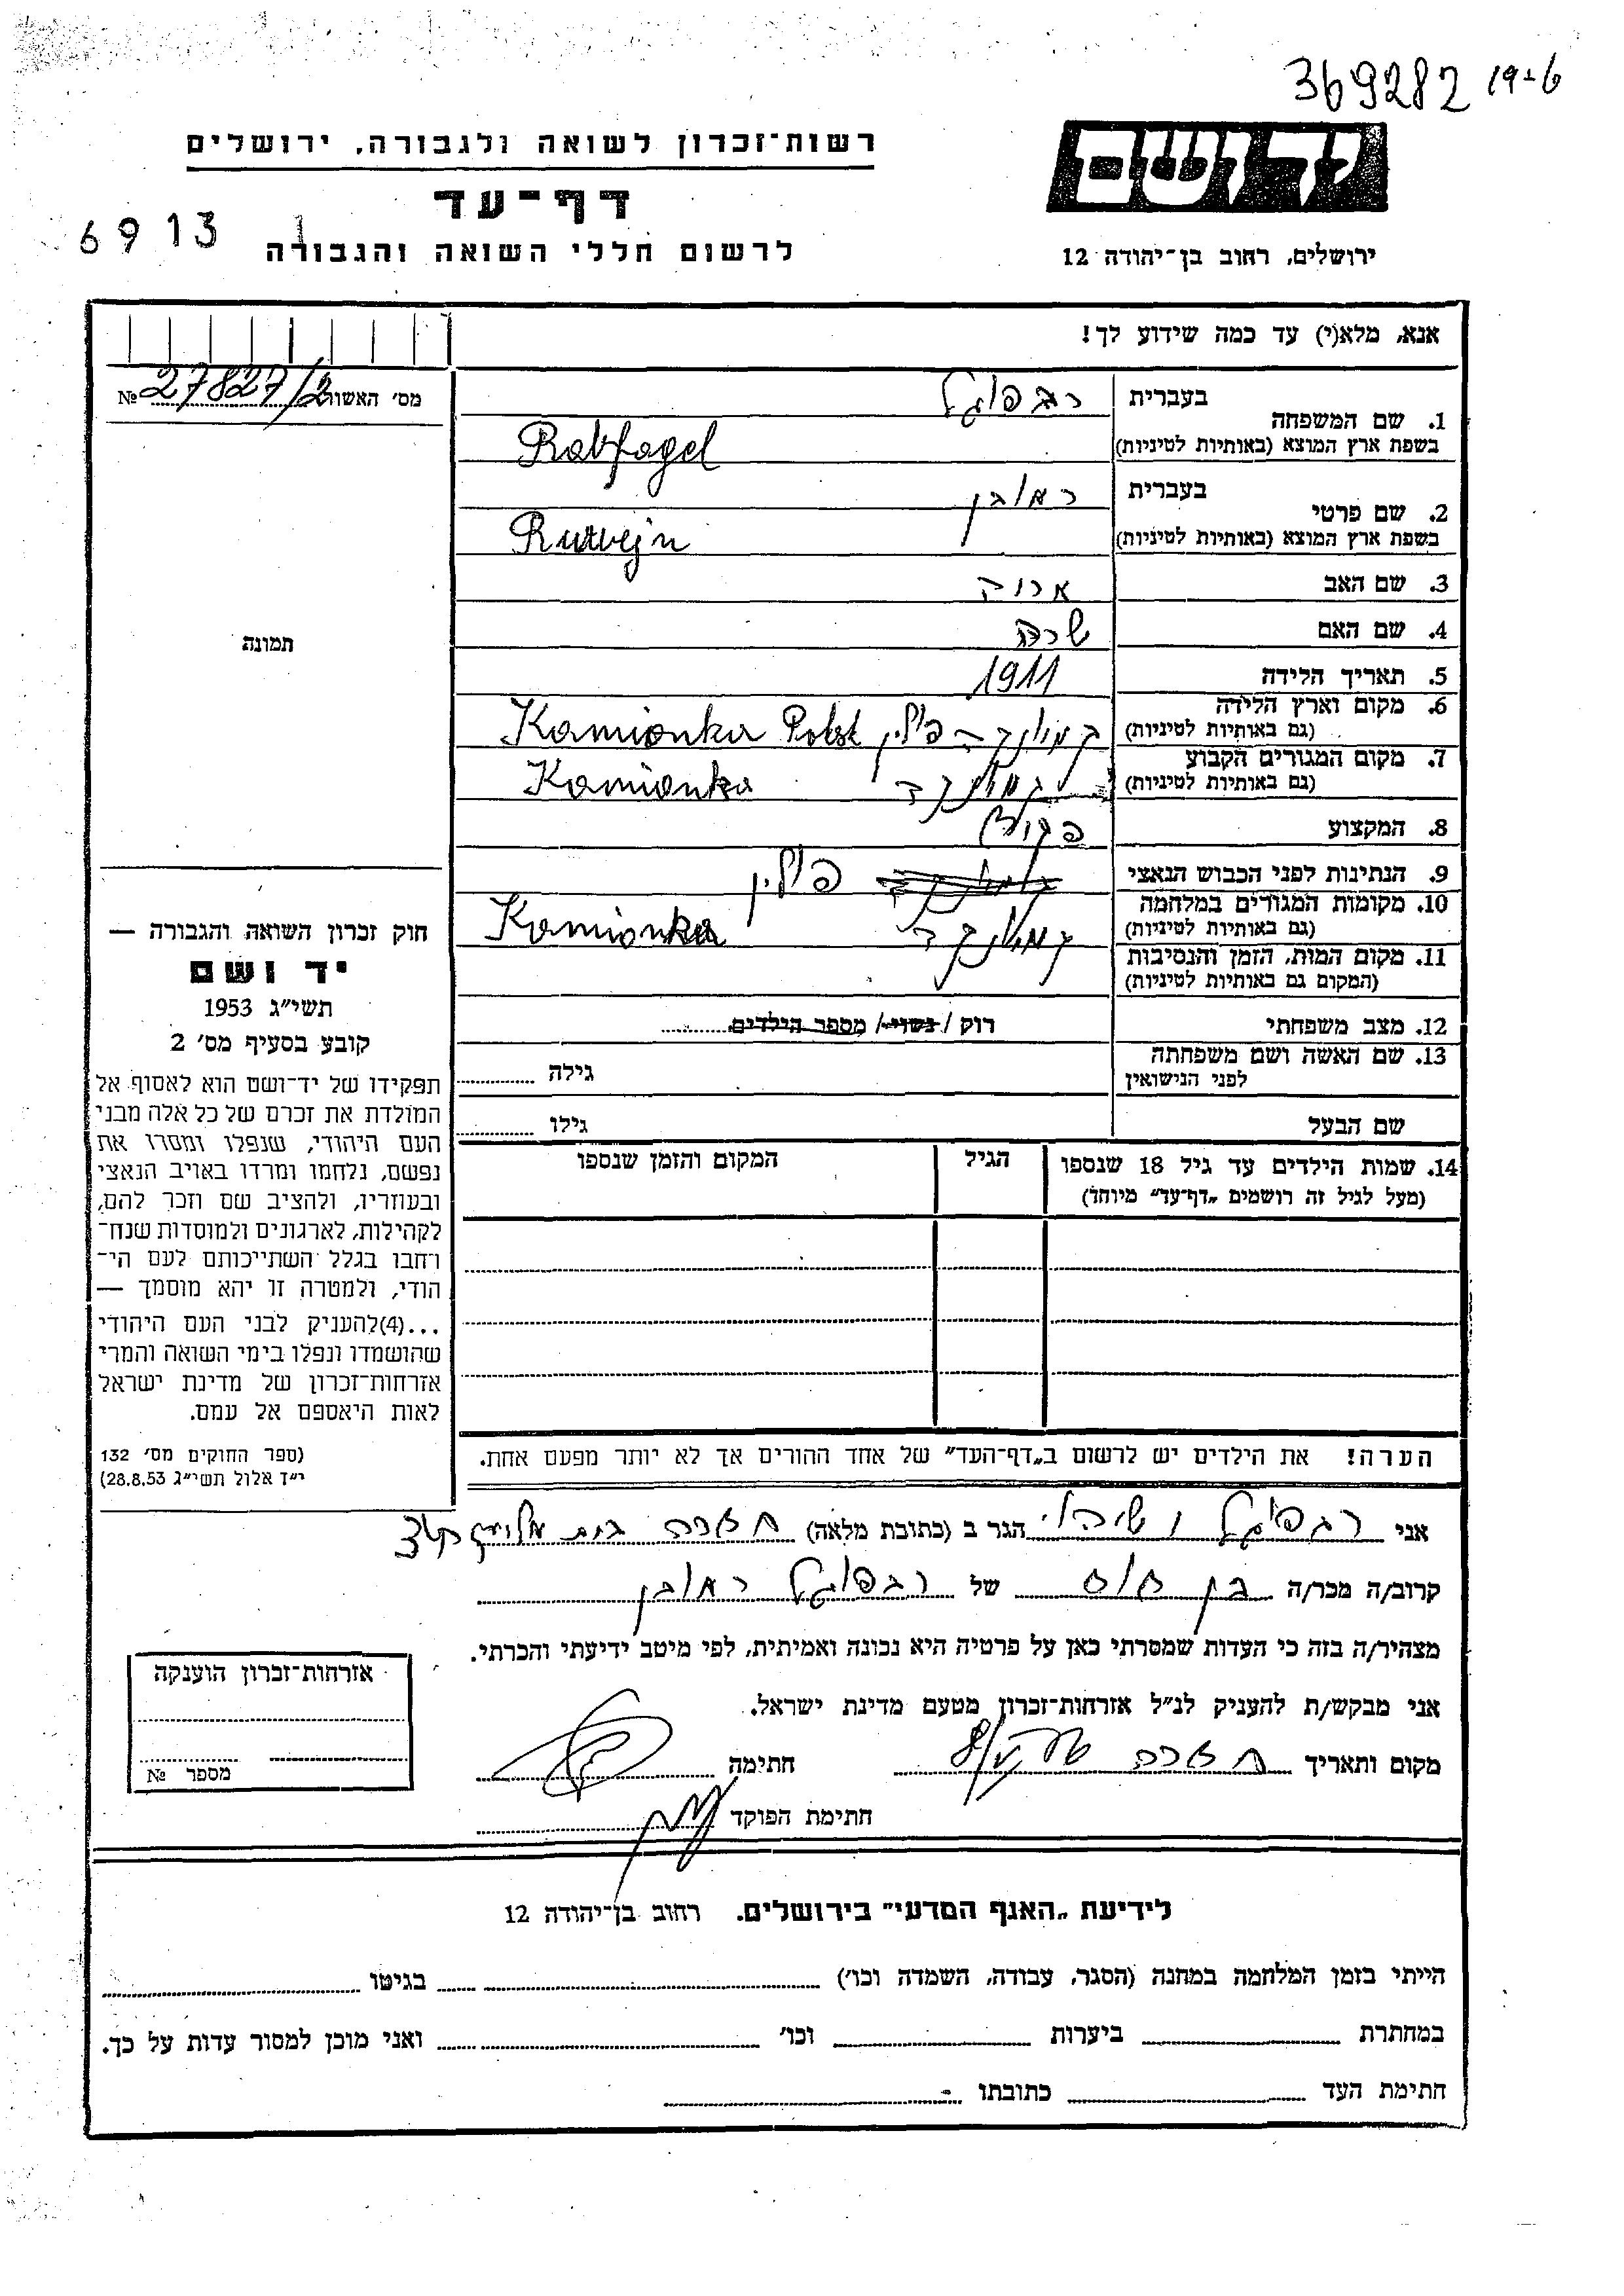 369282 19-6
רשות-זכרון לשואה ולגבורה, ירושלים
דף-עד
לרשום חללי השואה והגבורה
6913
ידושם
ירושלים, רחוב בן-יהודה 12
אנא, מלא(י) עד כמה שידוע לך!
מס׳ האשור 27827/2 №
1. שם המשפחה
בעברית רבפוגל
בשפת ארץ המוצא (באותיות לטיניות) Rabfogel
2. שם פרטי
בעברית ראובן
בשפת ארץ המוצא (באותיות לטיניות) Ruwejn
3. שם האב
4. שם האם שרה
5. תאריך הלידה 1911
6. מקום וארץ הלידה
(גם באותיות לטיניות) קמיונקה פולין Kamionka
7. מקום המגורים הקבוע
(גם באותיות לטיניות) קמיונקה Kamionka
8. המקצוע
9. הנתינות לפני הכבוש הנאצי פולין
10. מקומות המגורים במלחמה
(גם באותיות לטיניות) קמיונקה Kamionka
11. מקום המות, הזמן והנסיבות
(המקום גם באותיות לטיניות)
12. מצב משפחתי רוק / נשוי / מספר הילדים
13. שם האשה ושם משפחתה
לפני הנישואין
גילה
שם הבעל
גילו
14. שמות הילדים עד גיל 18 שנספו
(מעל לגיל זה רושמים „דף-עד״ מיוחד)
הגיל
המקום והזמן שנספו
הערה! את הילדים יש לרשום ב„דף-העד״ של אחד ההורים אך לא יותר מפעם אחת.
תמונה
חוק זכרון השואה והגבורה —
יד ושם
תשי״ג 1953
קובע בסעיף מס׳ 2
תפקידו של יד-ושם הוא לאסוף אל
המולדת את זכרם של כל אלה מבני
העם היהודי, שנפלו ומסרו את
נפשם, נלחמו ומרדו באויב הנאצי
ובעוזריו, ולהציב שם וזכר להם,
לקהילות, לארגונים ולמוסדות שנח-
רחבו בגלל השתייכותם לעם הי-
הודי, ולמטרה זו יהא מוסמך —
...(4)להעניק לבני העם היהודי
שהושמדו ונפלו בימי השואה והמרי
אזרחות-זכרון של מדינת ישראל
לאות היאספם אל עמם.
(ספר החוקים מס׳ 132
י״ד אלול תשי״ג 28.8.53)
אני רבפוגל הגר ב (כתובת מלאה) חדרה בית
קרוב/ה מכר/ה בן של רבפוגל ראובן
מצהיר/ה בזה כי העדות שמסרתי כאן על פרטיה היא נכונה ואמיתית, לפי מיטב ידיעתי והכרתי.
אני מבקש/ת להעניק לנ״ל אזרחות-זכרון מטעם מדינת ישראל.
מקום ותאריך חדרה חתימה
חתימת הפוקד
אזרחות-זכרון הוענקה
מספר №
לידיעת „האגף המדעי״ בירושלים. רחוב בן-יהודה 12
הייתי בזמן המלחמה במחנה (הסגר, עבודה, השמדה וכו׳) בגיטו
במחתרת ביערות וכו׳ ואני מוכן למסור עדות על כך.
חתימת העד כתובתו